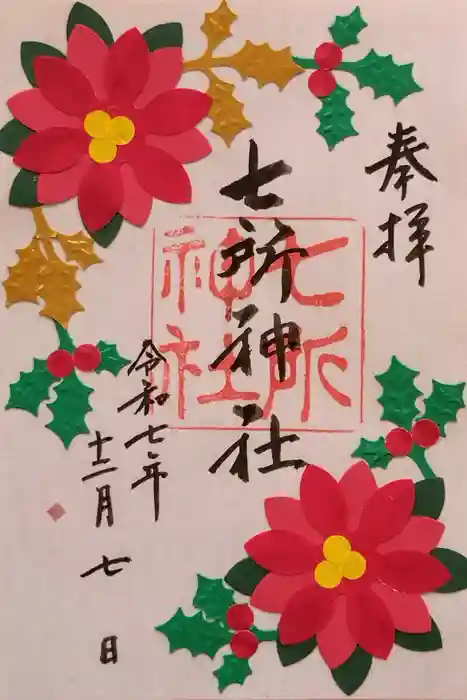 奉拝
七所神社
七所
神社
令和七年
十二月七日